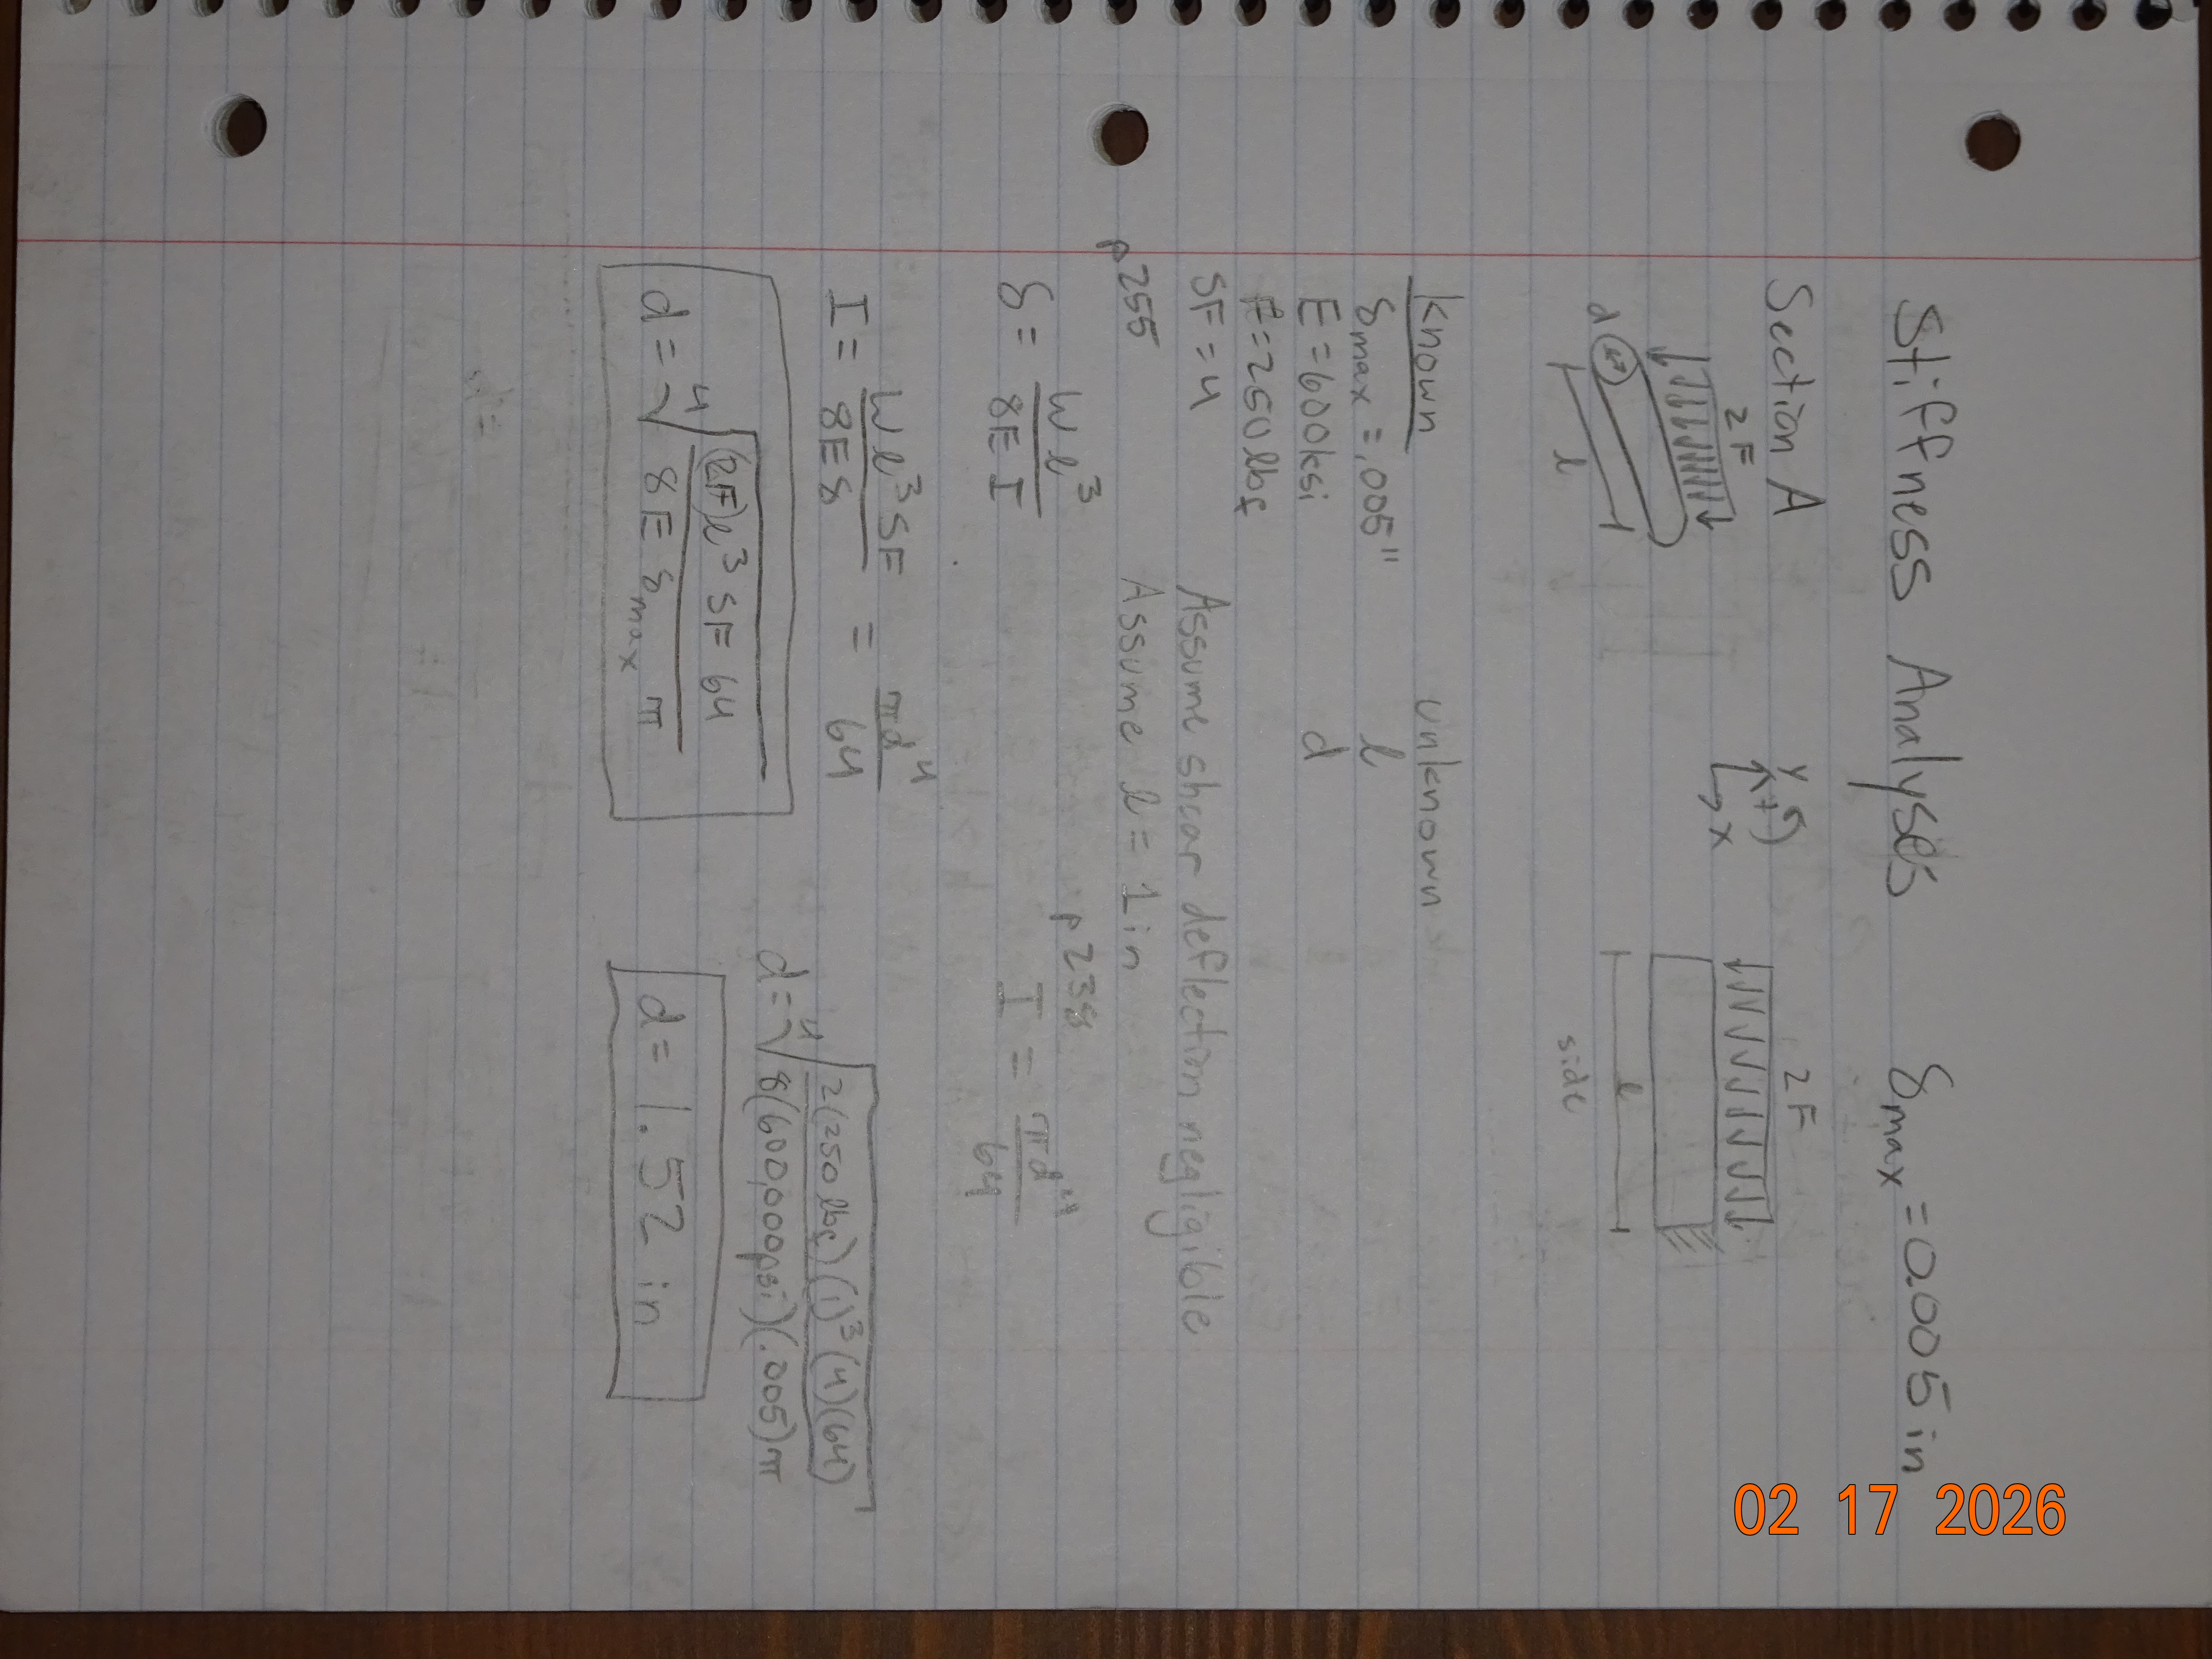 Stiffness Analyses δmax = 0.005 in
Section A
2F
y
+
x
2F
d
l
l
side
known unknown
δmax = .005" l
E = 600ksi d
F = 250 lbf
SF = 4 Assume shear deflection negligible
Assume l = 1 in
p255
p238
δ = Wl³ / 8EI
I = πd⁴ / 64
I = Wl³SF / 8Eδ = πd⁴ / 64
d = ⁴√((2F)l³ SF 64 / 8 E δmax π)
d = ⁴√(2(250 lbf)(1)³(4)(64) / 8(600,000psi)(.005)π)
d = 1.52 in
02 17 2026